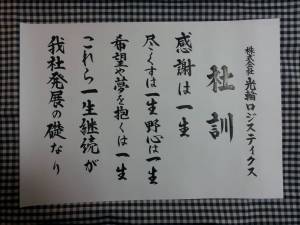 株式会社光輪ロジスティクス
社訓
感謝は一生
尽くすは一生野心は一生
希望や夢を抱くは一生
これら一生継続が
我社発展の礎なり